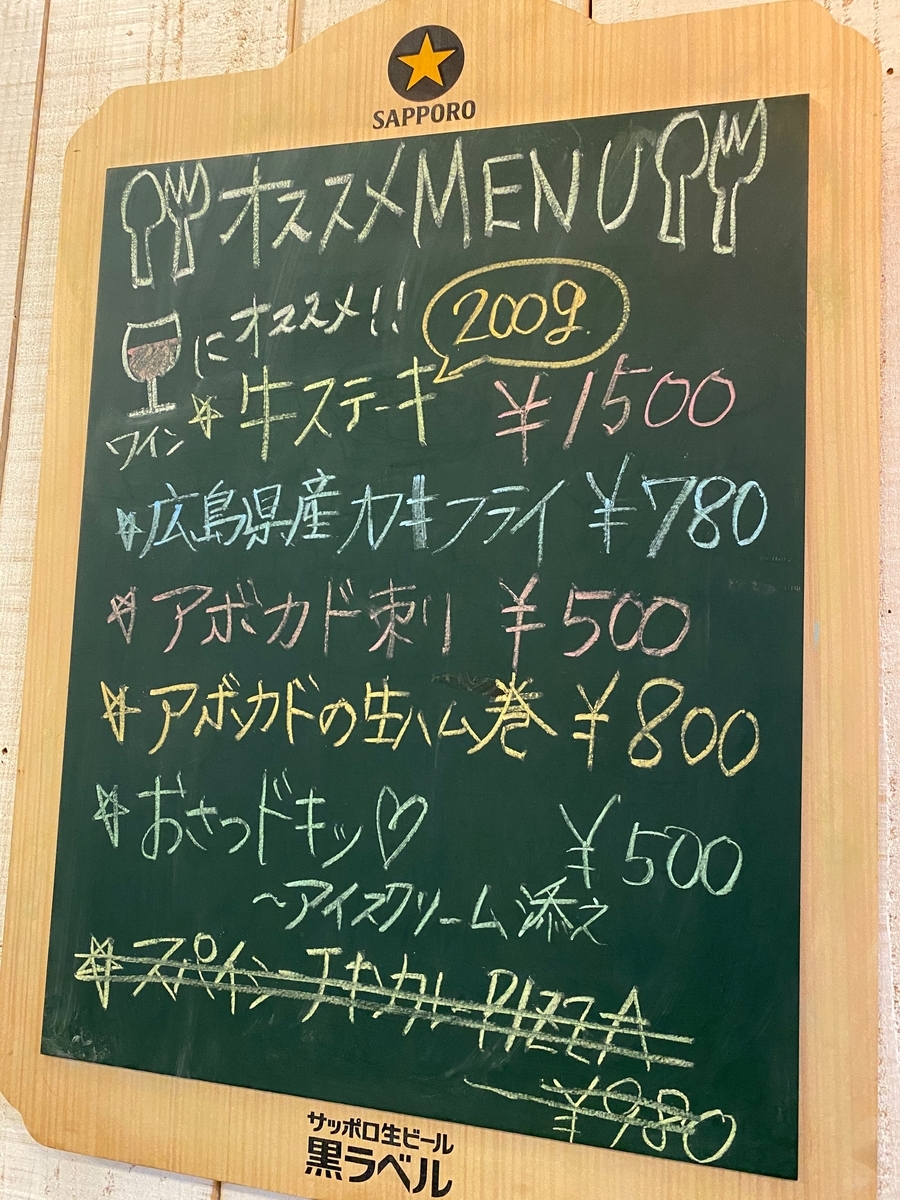 SAPPORO
オススメMENU
にオススメ!!
200g
ワイン
☆牛ステーキ ¥1500
☆広島県産カキフライ ¥780
☆アボカド刺り ¥500
☆アボカドの生ハム巻 ¥800
☆おさつドキッ♡ ¥500
~アイスクリーム添え
☆スパイシーチキンカレーPIZZA
¥980
サッポロ生ビール
黒ラベル